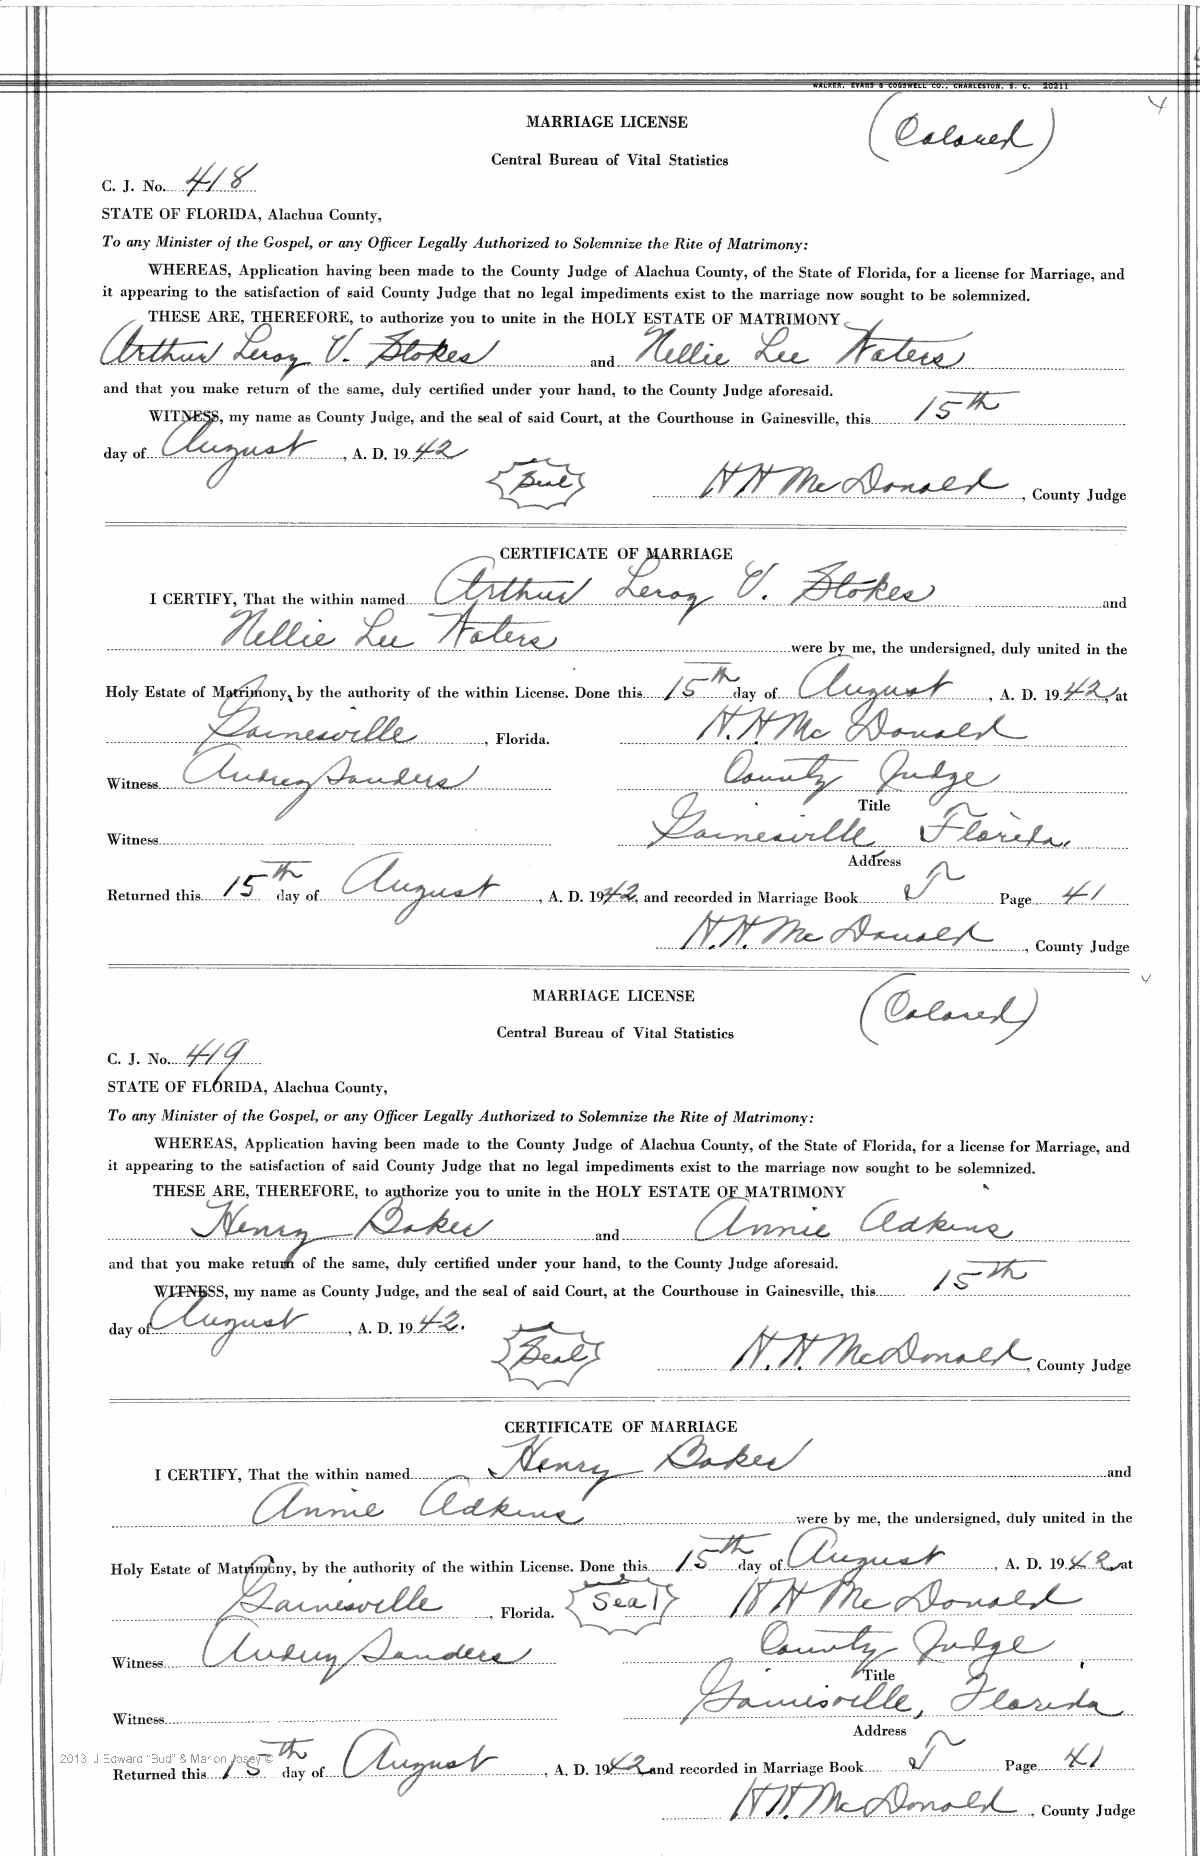 WALKER, EVANS & COGSWELL CO., CHARLESTON, S. C. 20211
MARRIAGE LICENSE (Colored)
Central Bureau of Vital Statistics
C. J. No. 418
STATE OF FLORIDA, Alachua County,
To any Minister of the Gospel, or any Officer Legally Authorized to Solemnize the Rite of Matrimony:
WHEREAS, Application having been made to the County Judge of Alachua County, of the State of Florida, for a license for Marriage, and
it appearing to the satisfaction of said County Judge that no legal impediments exist to the marriage now sought to be solemnized.
THESE ARE, THEREFORE, to authorize you to unite in the HOLY ESTATE OF MATRIMONY
Arthur Leroy V. Stokes and Nellie Lee Waters
and that you make return of the same, duly certified under your hand, to the County Judge aforesaid.
WITNESS, my name as County Judge, and the seal of said Court, at the Courthouse in Gainesville, this 15th
day of August, A. D. 1942
Seal H H McDonald, County Judge
CERTIFICATE OF MARRIAGE
I CERTIFY, That the within named Arthur Leroy V. Stokes and
Nellie Lee Waters were by me, the undersigned, duly united in the
Holy Estate of Matrimony, by the authority of the within License. Done this 15th day of August, A. D. 1942, at
Gainesville, Florida. H. H. McDonald
Witness Audrey Sanders County Judge
Title
Witness Gainesville, Florida.
Address
Returned this 15th day of August, A. D. 1942, and recorded in Marriage Book T Page 41
H. H. McDonald, County Judge
MARRIAGE LICENSE (Colored)
Central Bureau of Vital Statistics
C. J. No. 419
STATE OF FLORIDA, Alachua County,
To any Minister of the Gospel, or any Officer Legally Authorized to Solemnize the Rite of Matrimony:
WHEREAS, Application having been made to the County Judge of Alachua County, of the State of Florida, for a license for Marriage, and
it appearing to the satisfaction of said County Judge that no legal impediments exist to the marriage now sought to be solemnized.
THESE ARE, THEREFORE, to authorize you to unite in the HOLY ESTATE OF MATRIMONY
Henry Baker and Annie Adkins
and that you make return of the same, duly certified under your hand, to the County Judge aforesaid.
WITNESS, my name as County Judge, and the seal of said Court, at the Courthouse in Gainesville, this 15th
day of August, A. D. 1942.
Seal H. H. McDonald, County Judge
CERTIFICATE OF MARRIAGE
I CERTIFY, That the within named Henry Baker and
Annie Adkins were by me, the undersigned, duly united in the
Holy Estate of Matrimony, by the authority of the within License. Done this 15th day of August, A. D. 1942, at
Gainesville, Florida. Seal H H McDonald
Witness Audrey Sanders County Judge
Title
Witness Gainesville, Florida
Address
2013 J Edward "Bud" & Marion Josey ©
Returned this 15th day of August, A. D. 1942 and recorded in Marriage Book T Page 41
H. H. McDonald, County Judge